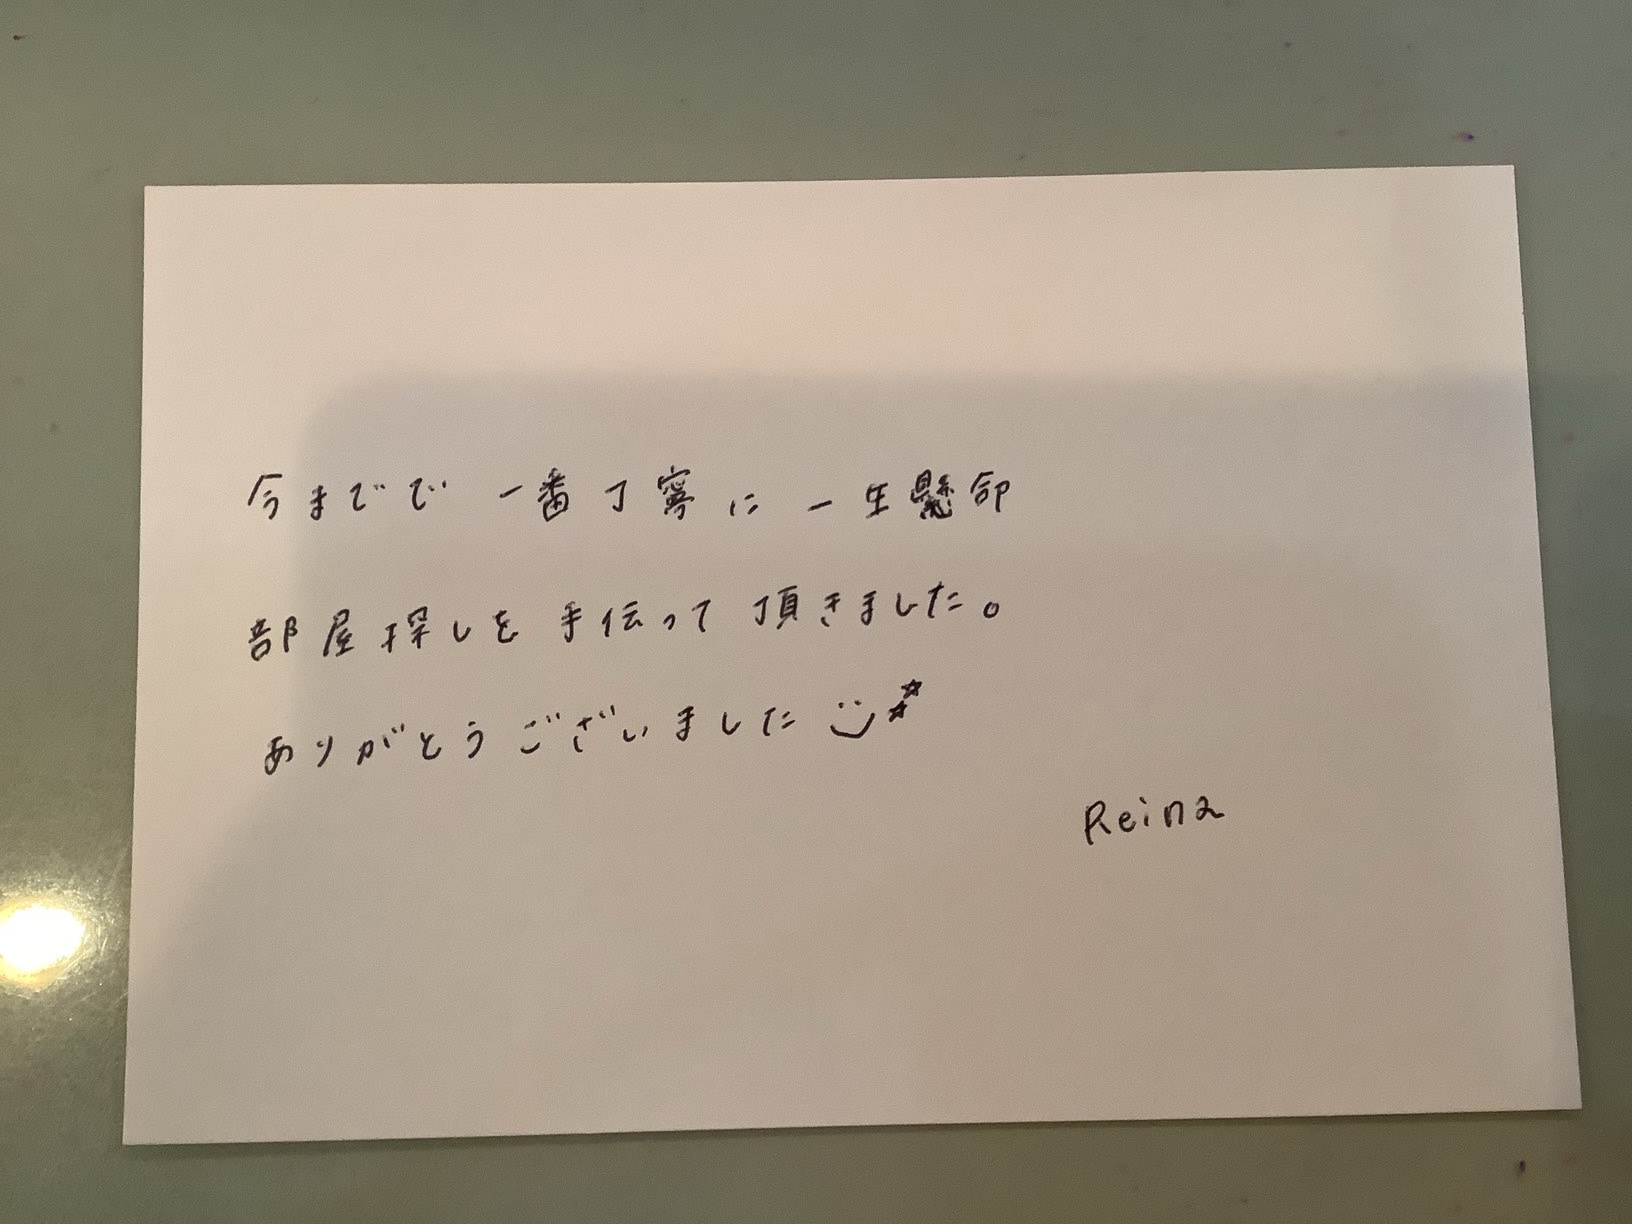 今までで一番丁寧に一生懸命
部屋探しを手伝って頂きました。
ありがとうございました
Reina